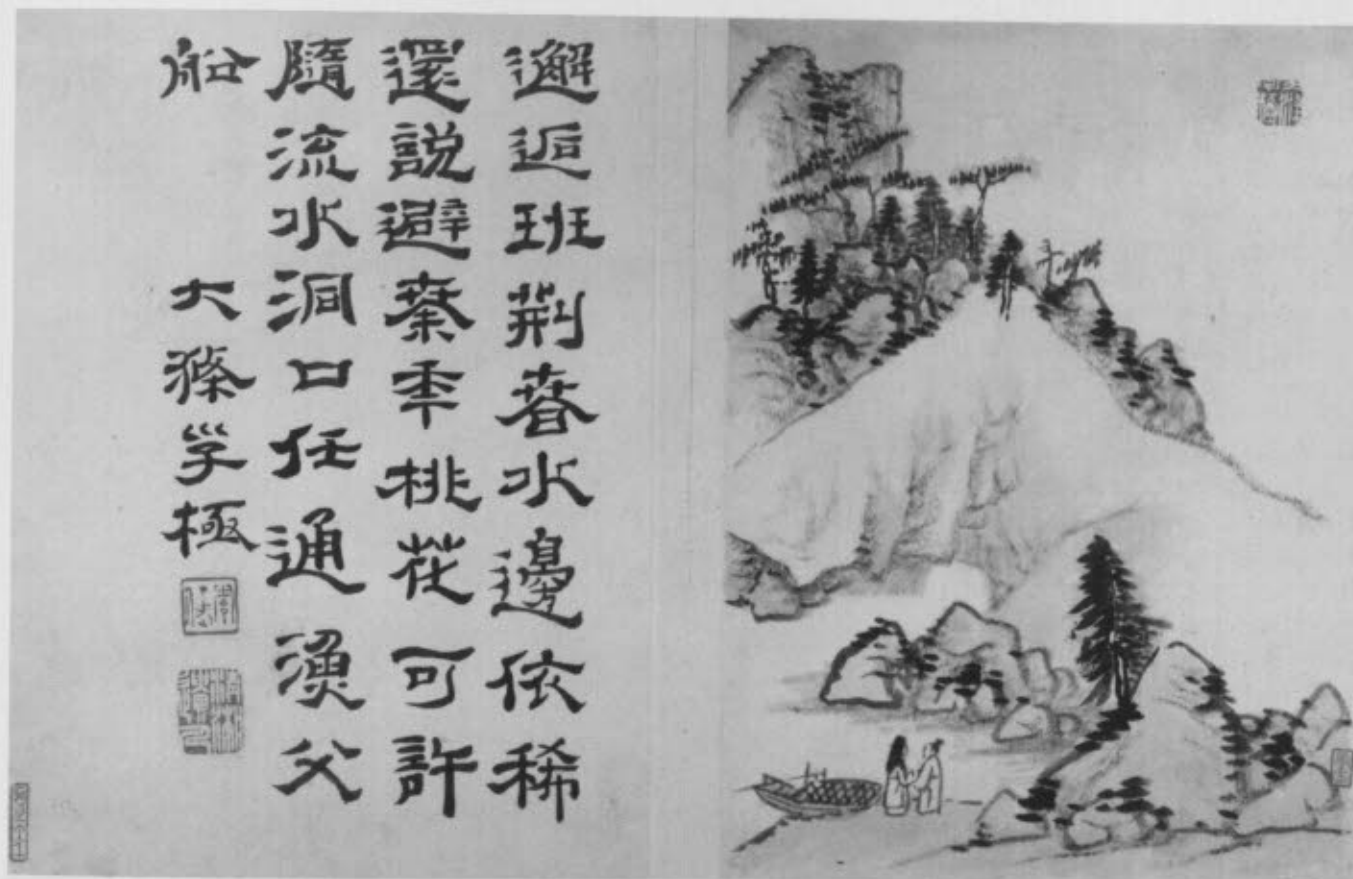 邂逅班荊春水邊依稀
還說避秦年桃花可許
隨流水洞口任通漁父
船 大滌子極